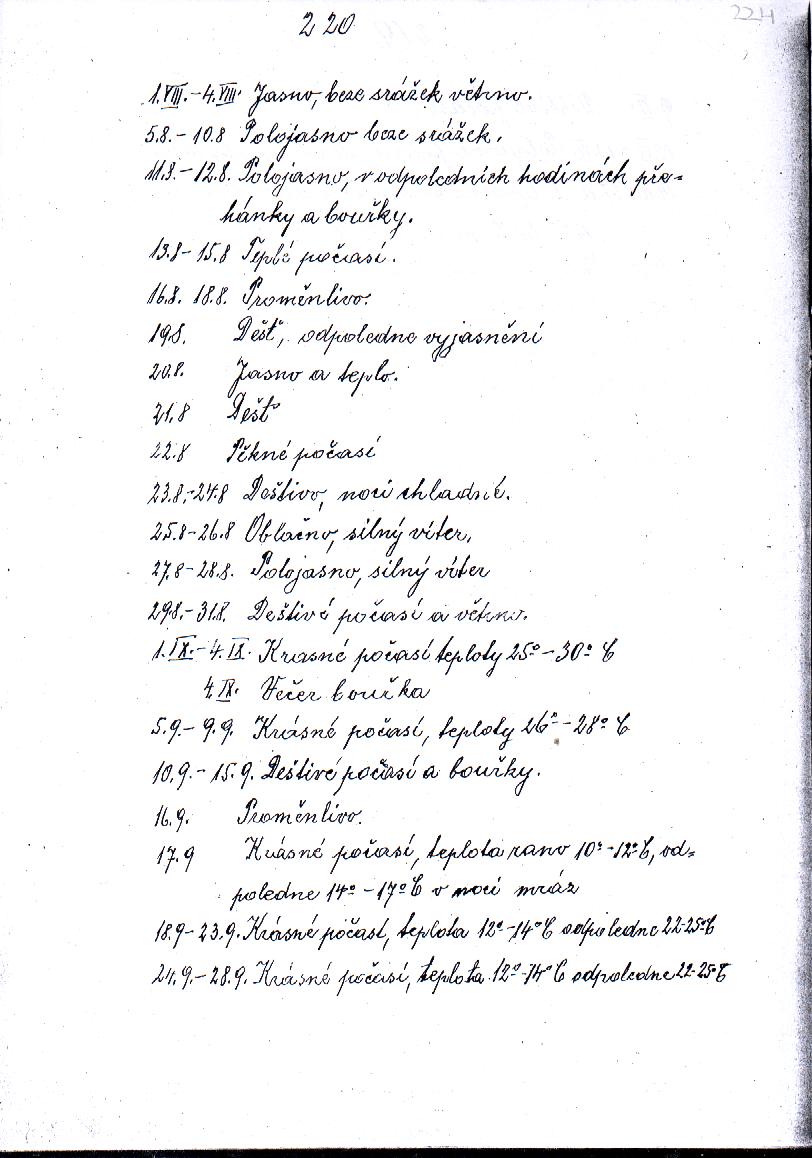 220
224
1.VIII.-4.VIII. Jasno, beze srážek větrno.
5.8.-10.8 Polojasno beze srážek.
11.8.-12.8. Polojasno, v odpoledních hodinách pře-
hánky a bouřky.
13.8-15.8 Teplé počasí.
16.8. 18.8. Proměnlivo.
19.8. Déšť, odpoledne vyjasnění
20.8. Jasno a teplo.
21.8 Déšť
22.8 Pěkné počasí
23.8.-24.8 Deštivo, noci chladné.
25.8-26.8 Oblačno, silný vítr.
27.8-28.8. Polojasno, silný vítr
29.8.-31.8. Deštivé počasí a větrno.
1.IX.-4.IX. Krásné počasí teploty 25°-30°C
4.IX. Večer bouřka
5.9.-9.9. Krásné počasí, teploty 26°-28°C
10.9.-15.9. Deštivé počasí a bouřky.
16.9. Proměnlivo.
17.9 Krásné počasí, teplota ráno 10°-12°C, od=
poledne 14°-17°C v noci mráz
18.9-23.9. Krásné počasí, teplota 12°-14°C odpoledne 22-25°C
24.9.-28.9. Krásné počasí, teplota 12°-14°C odpoledne 22-25°C